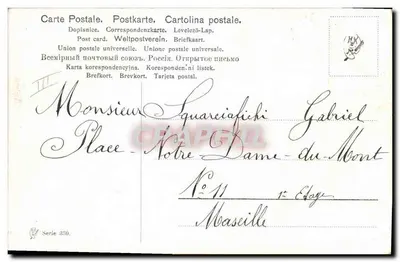 Carte Postale. Postkarte. Cartolina postale.
Dopisnice. Correspondenzkarte. Levelező-Lap.
Post card. Weltpostverein. Briefkaart.
Union postale universelle. Unione postale universale.
Всемірный почтовый союзъ. Россія. Открытое письмо
Karta korespondencyjna. Korespondenční listek.
Brefkort. Brevkort. Tarjeta postal.
III
Monsieur Squarciafichi Gabriel
Place-Notre-Dame-du-Mont
No 11 1er Etage
Maseille
Serie 370.